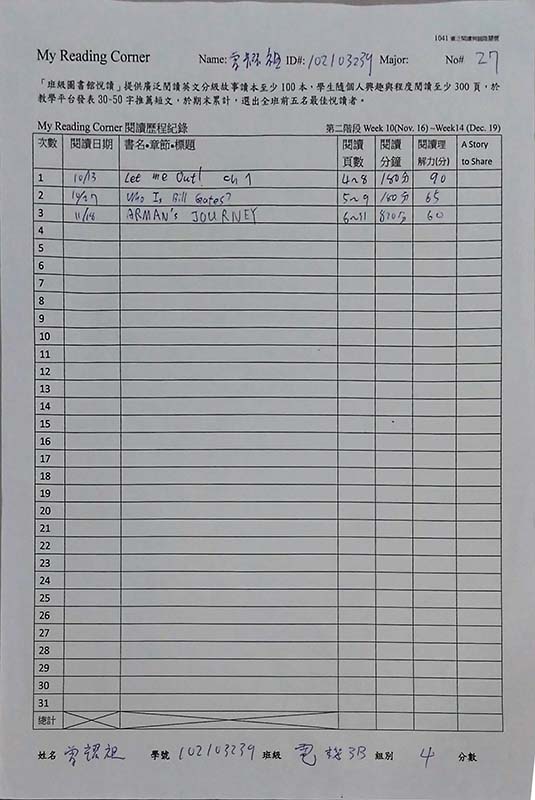 My Reading Corner Name: 曾耀祖 ID#: 102103239 Major: No# 27
「班級圖書館悅讀」提供廣泛閱讀英文分級故事讀本至少 100 本，學生隨個人興趣與程度閱讀至少 300 頁，於
教學平台發表 30-50 字推薦短文，於期末累計，選出全班前五名最佳悅讀者。
My Reading Corner 閱讀歷程紀錄 第二階段 Week 10(Nov. 16) ~Week14 (Dec. 19)
次數 閱讀日期 書名•章節•標題 閱讀頁數 閱讀分鐘 閱讀理解力(分) A Story to Share
1 10/13 Let me Out! ch 1 4~8 180分 90
2 Who Is Bill Gates? 5~9 180分 65
3 11/18 ARMAN's JOURNEY 6~11 分 60
4
5
6
7
8
9
10
11
12
13
14
15
16
17
18
19
20
21
22
23
24
25
26
27
28
29
30
31
總計
姓名 曾耀祖 學號 102103239 班級 電機3B 組別 4 分數